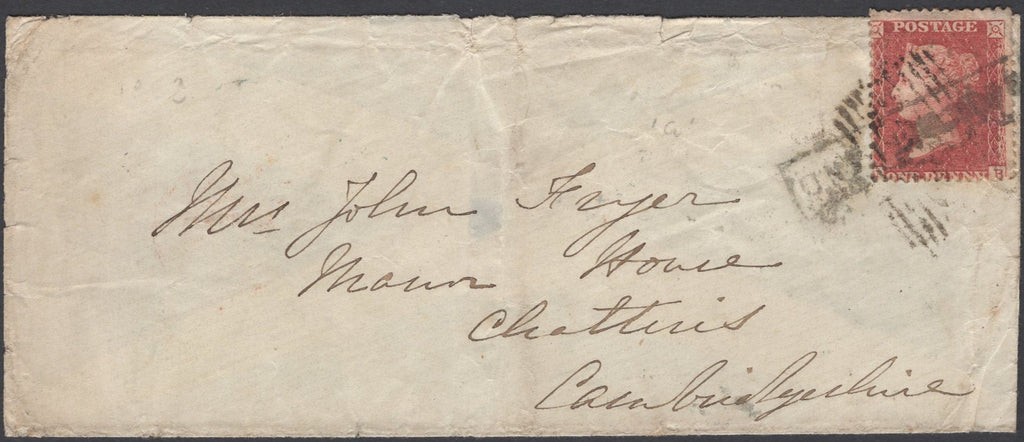 POSTAGE
ONE PENNY
Mrs John Fryer
Manor House
Chatteris
Cambridgeshire